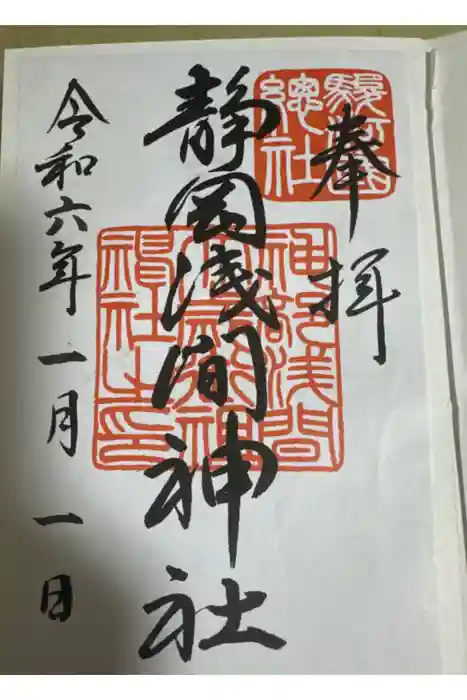 奉拝
駿河國總社
静岡浅間神社
神部浅間大歳御祖神社之印
令和六年一月一日